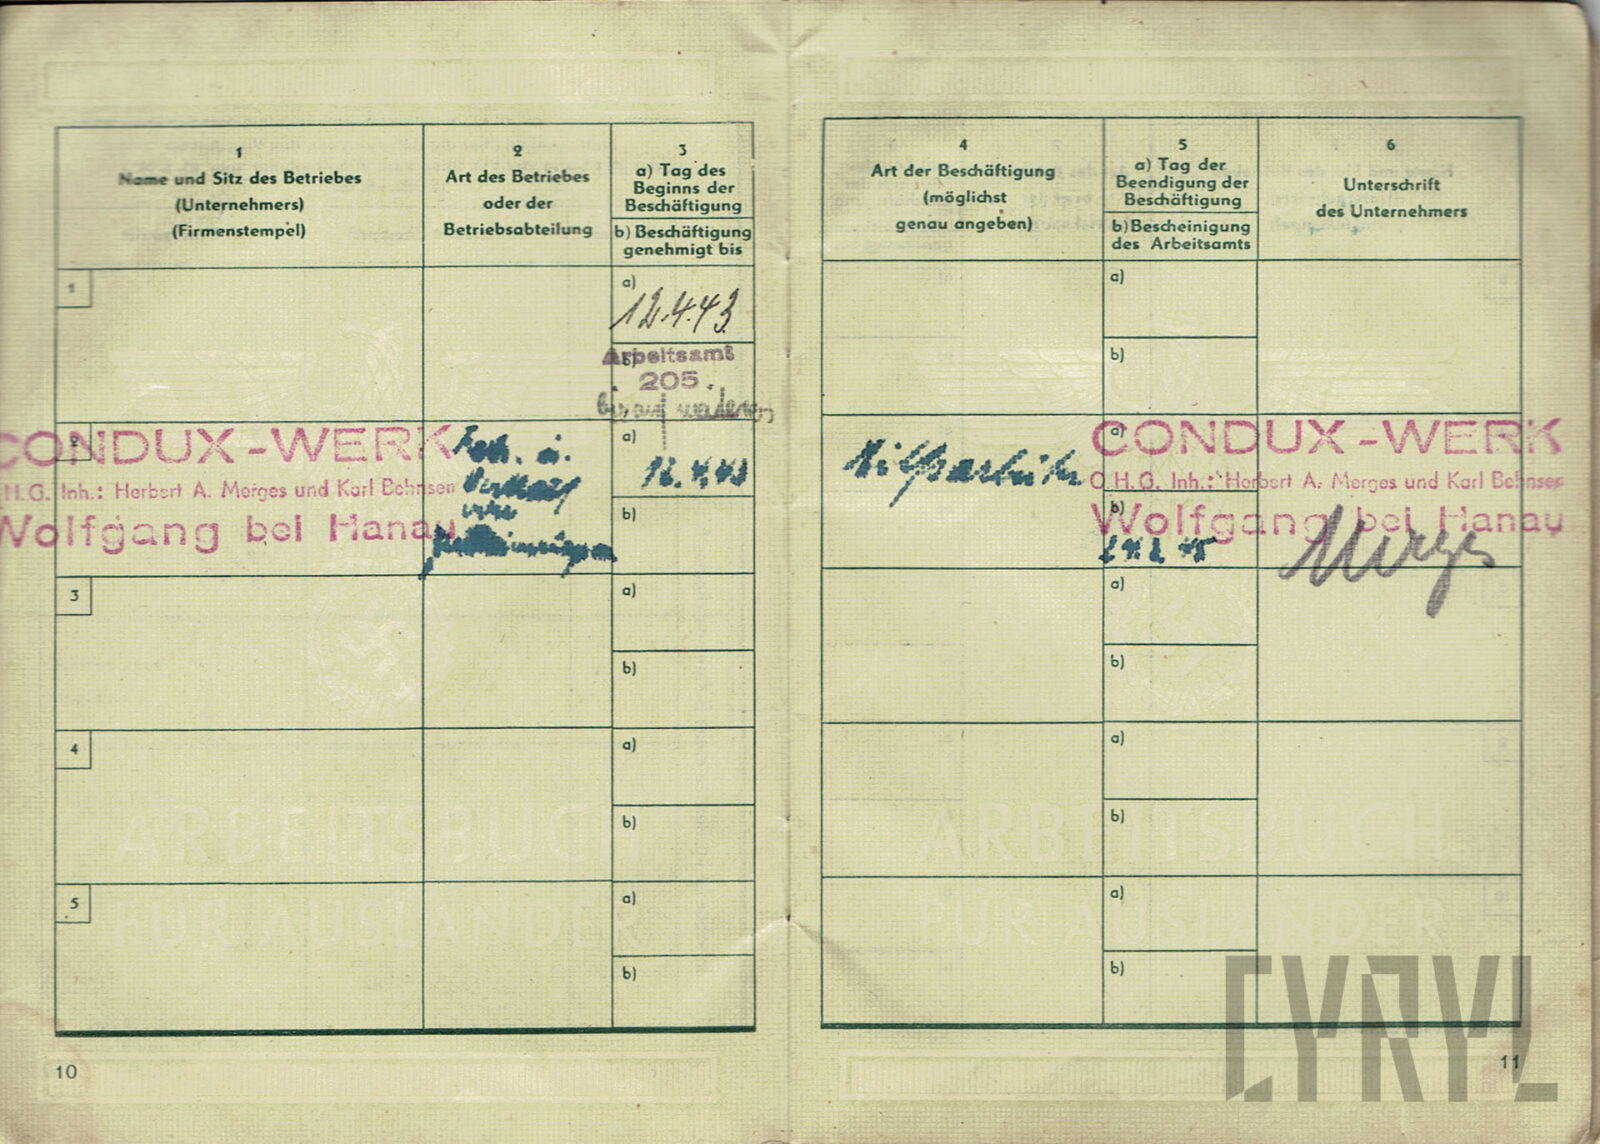 1
Name und Sitz des Betriebes
(Unternehmers)
(Firmenstempel)
2
Art des Betriebes
oder der
Betriebsabteilung
3
a) Tag des
Beginns der
Beschäftigung
b) Beschäftigung
genehmigt bis
1
a)
12.4.43
b)
Arbeitsamt
205
2
CONDUX-WERK
H.G. Inh.: Herbert A. Merges und Karl Behnsen
Wolfgang bei Hanau
a)
12.4.43
b)
3
a)
b)
4
a)
b)
5
a)
b)
ARBEITSBUCH
FÜR AUSLÄNDER
10
4
Art der Beschäftigung
(möglichst
genau angeben)
5
a) Tag der
Beendigung der
Beschäftigung
b) Bescheinigung
des Arbeitsamts
6
Unterschrift
des Unternehmers
a)
b)
Hilfsarbeiter
a)
CONDUX-WERK
O.H.G. Inh.: Herbert A. Merges und Karl Behnsen
b)
Wolfgang bei Hanau
Merges
a)
b)
a)
b)
a)
b)
ARBEITSBUCH
FÜR AUSLÄNDER
11
CYRYL